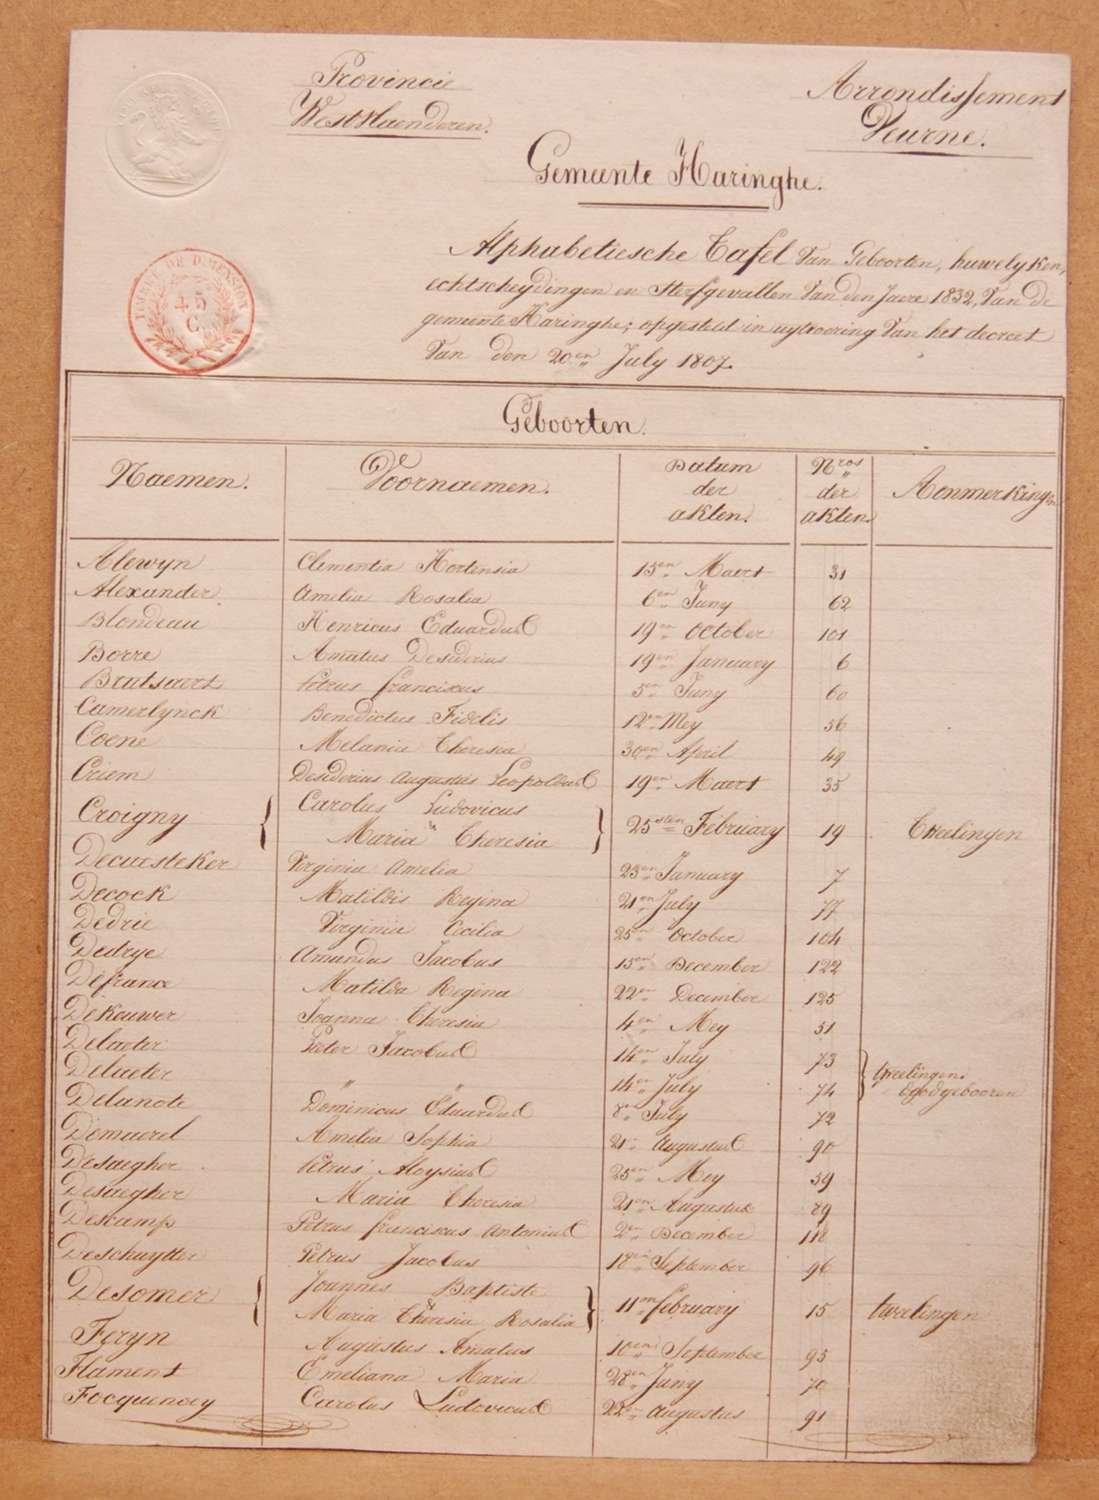 Provincie
West Vlaenderen.
Arrondissement
Veurne.
Gemeente Haringhe.
TIMBRE DE DIMENSION
45
C
Alphabetiesche Tafel van Geboorten, huwelyken,
echtscheydingen en sterfgevallen van den Jaere 1832, van de
gemeente Haringhe; opgesteld in uytvoering van het decreet
van den 20en July 1807.
Geboorten.
Naemen. Voornaemen. Datum der akten. Nros der akten. Aenmerkingen
Alewyn Clementia Hortensia 15en Maert 31
Alexander Amelia Rosalia 6en Juny 62
Blondeau Henricus Eduardus 19en October 101
Borre Amatus Desiderius 19en January 6
Brutsaert Petrus franciscus 5en Juny 60
Camerlynck Benedictus Fidelis 12en Mey 56
Coene Melania Theresia 30en April 49
Criem Desiderius Augustus Leopoldus 19en Maert 35
Croigny { Carolus Ludovicus
Maria Theresia } 25sten February 19 Tweelingen
Decuesteker Virginia Amelia 23en January 7
Decock Matildis Regina 21en July 77
Dedrie Virginia Cecilia 25en October 104
Dedrye Amandus Jacobus 15en December 122
Defrance Matilda Regina 22en December 125
Dekouwer Joanna Theresia 4en Mey 51
Delaeter Pieter Jacobus 14en July 73
Delaeter " " 14en July 74 } tweelingen. doodgebooren
Delanote Dominicus Eduardus 8en July 72
Demaerel Amelia Sophia 21en Augustus 90
Desaegher Petrus Aloysius 25en Mey 59
Desaegher Maria Theresia 21en Augustus 89
Descamps Petrus franciscus Antonius 2en December 118
Deschuytter Petrus Jacobus 18en September 96
Desomer { Joannes Baptiste
Maria Theresia Rosalia } 11en february 15 tweelingen
Feryn Augustus Amatus 10en September 95
Flament Emeliana Maria 28en Juny 70
Focquenoey Carolus Ludovicus 22en augustus 91